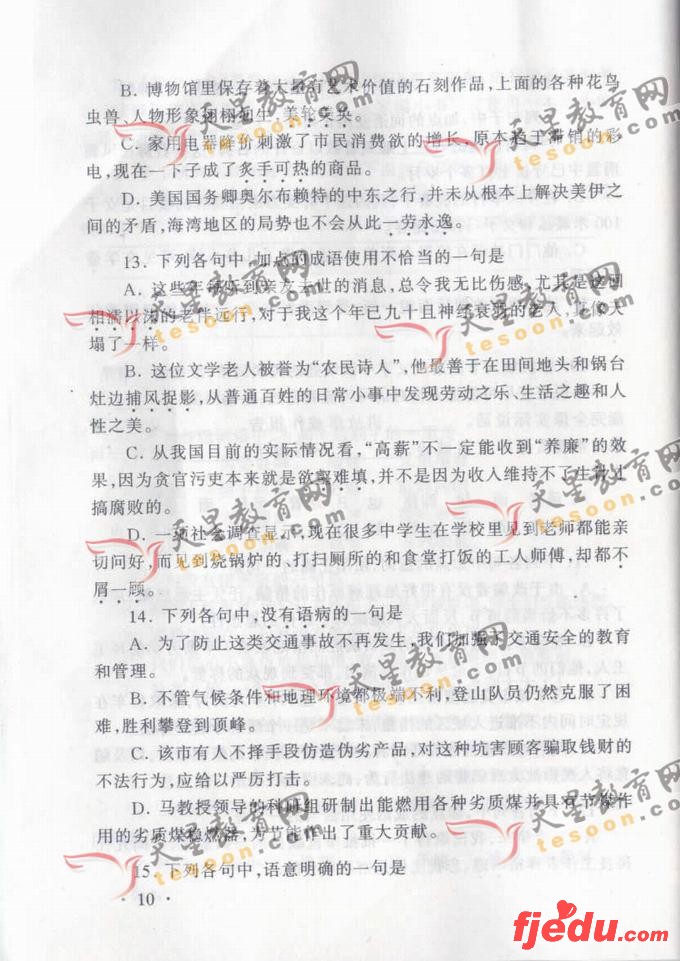 B. 博物馆里保存着大量有艺术价值的石刻作品，上面的各种花鸟
虫兽、人物形象栩栩如生，美轮美奂。
C. 家用电器降价刺激了市民消费欲的增长，原本趋于滞销的彩
电，现在一下子成了炙手可热的商品。
D. 美国国务卿奥尔布赖特的中东之行，并未从根本上解决美伊之
间的矛盾，海湾地区的局势也不会从此一劳永逸。
13. 下列各句中，加点的成语使用不恰当的一句是
A. 这些年每乐到亲友去世的消息，总令我无比伤感，尤其是这回
相濡以沫的老伴远行，对于我这个年已九十且神经衰弱的老人，真像天
塌了一样。
B. 这位文学老人被誉为“农民诗人”，他最善于在田间地头和锅台
灶边捕风捉影，从普通百姓的日常小事中发现劳动之乐、生活之趣和人
性之美。
C. 从我国目前的实际情况看，“高薪”不一定能收到“养廉”的效
果，因为贪官污吏本来就是欲壑难填，并不是因为收入维持不了生计才
搞腐败的。
D. 一项社会调查显示，现在很多中学生在学校里见到老师都能亲
切问好，而见到烧锅炉的、打扫厕所的和食堂打饭的工人师傅，却都不
屑一顾。
14. 下列各句中，没有语病的一句是
A. 为了防止这类交通事故不再发生，我们加强了交通安全的教育
和管理。
B. 不管气候条件和地理环境都极端不利，登山队员仍然克服了困
难，胜利攀登到顶峰。
C. 该市有人不择手段仿造伪劣产品，对这种坑害顾客骗取钱财的
不法行为，应给以严厉打击。
D. 马教授领导的科研组研制出能燃用各种劣质煤并具有节煤作
用的劣质煤稳燃器，为节能作出了重大贡献。
15. 下列各句中，语意明确的一句是
· 10 ·
天星教育网
tesoon.com
天星教育网
tesoon.com
天星教育网
tesoon.com
天星教育网
tesoon.com
天星教育网
tesoon.com
天星教育网
tesoon.com
天星教育网
tesoon.com
天星教育网
tesoon.com
fjedu.com